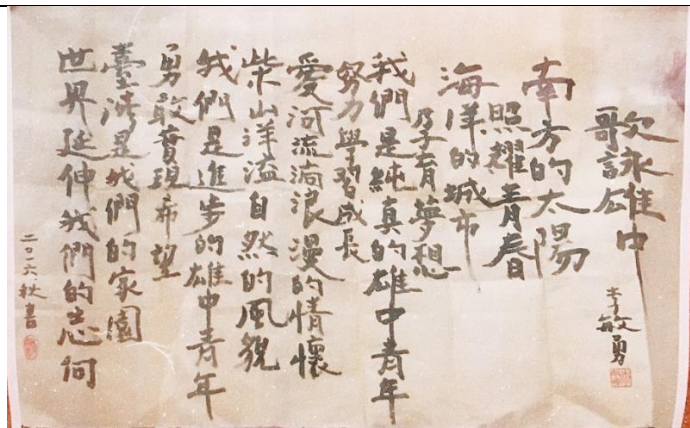 歌詠雄中
李敏勇
南方的太陽
照耀青春
海洋的城市
孕育夢想
我們是純真的雄中青年
努力學習成長
愛河流淌浪漫的情懷
柴山洋溢自然的風貌
我們是進步的雄中青年
勇敢實現希望
臺灣是我們的家園
世界延伸我們的志向
二〇一六秋書